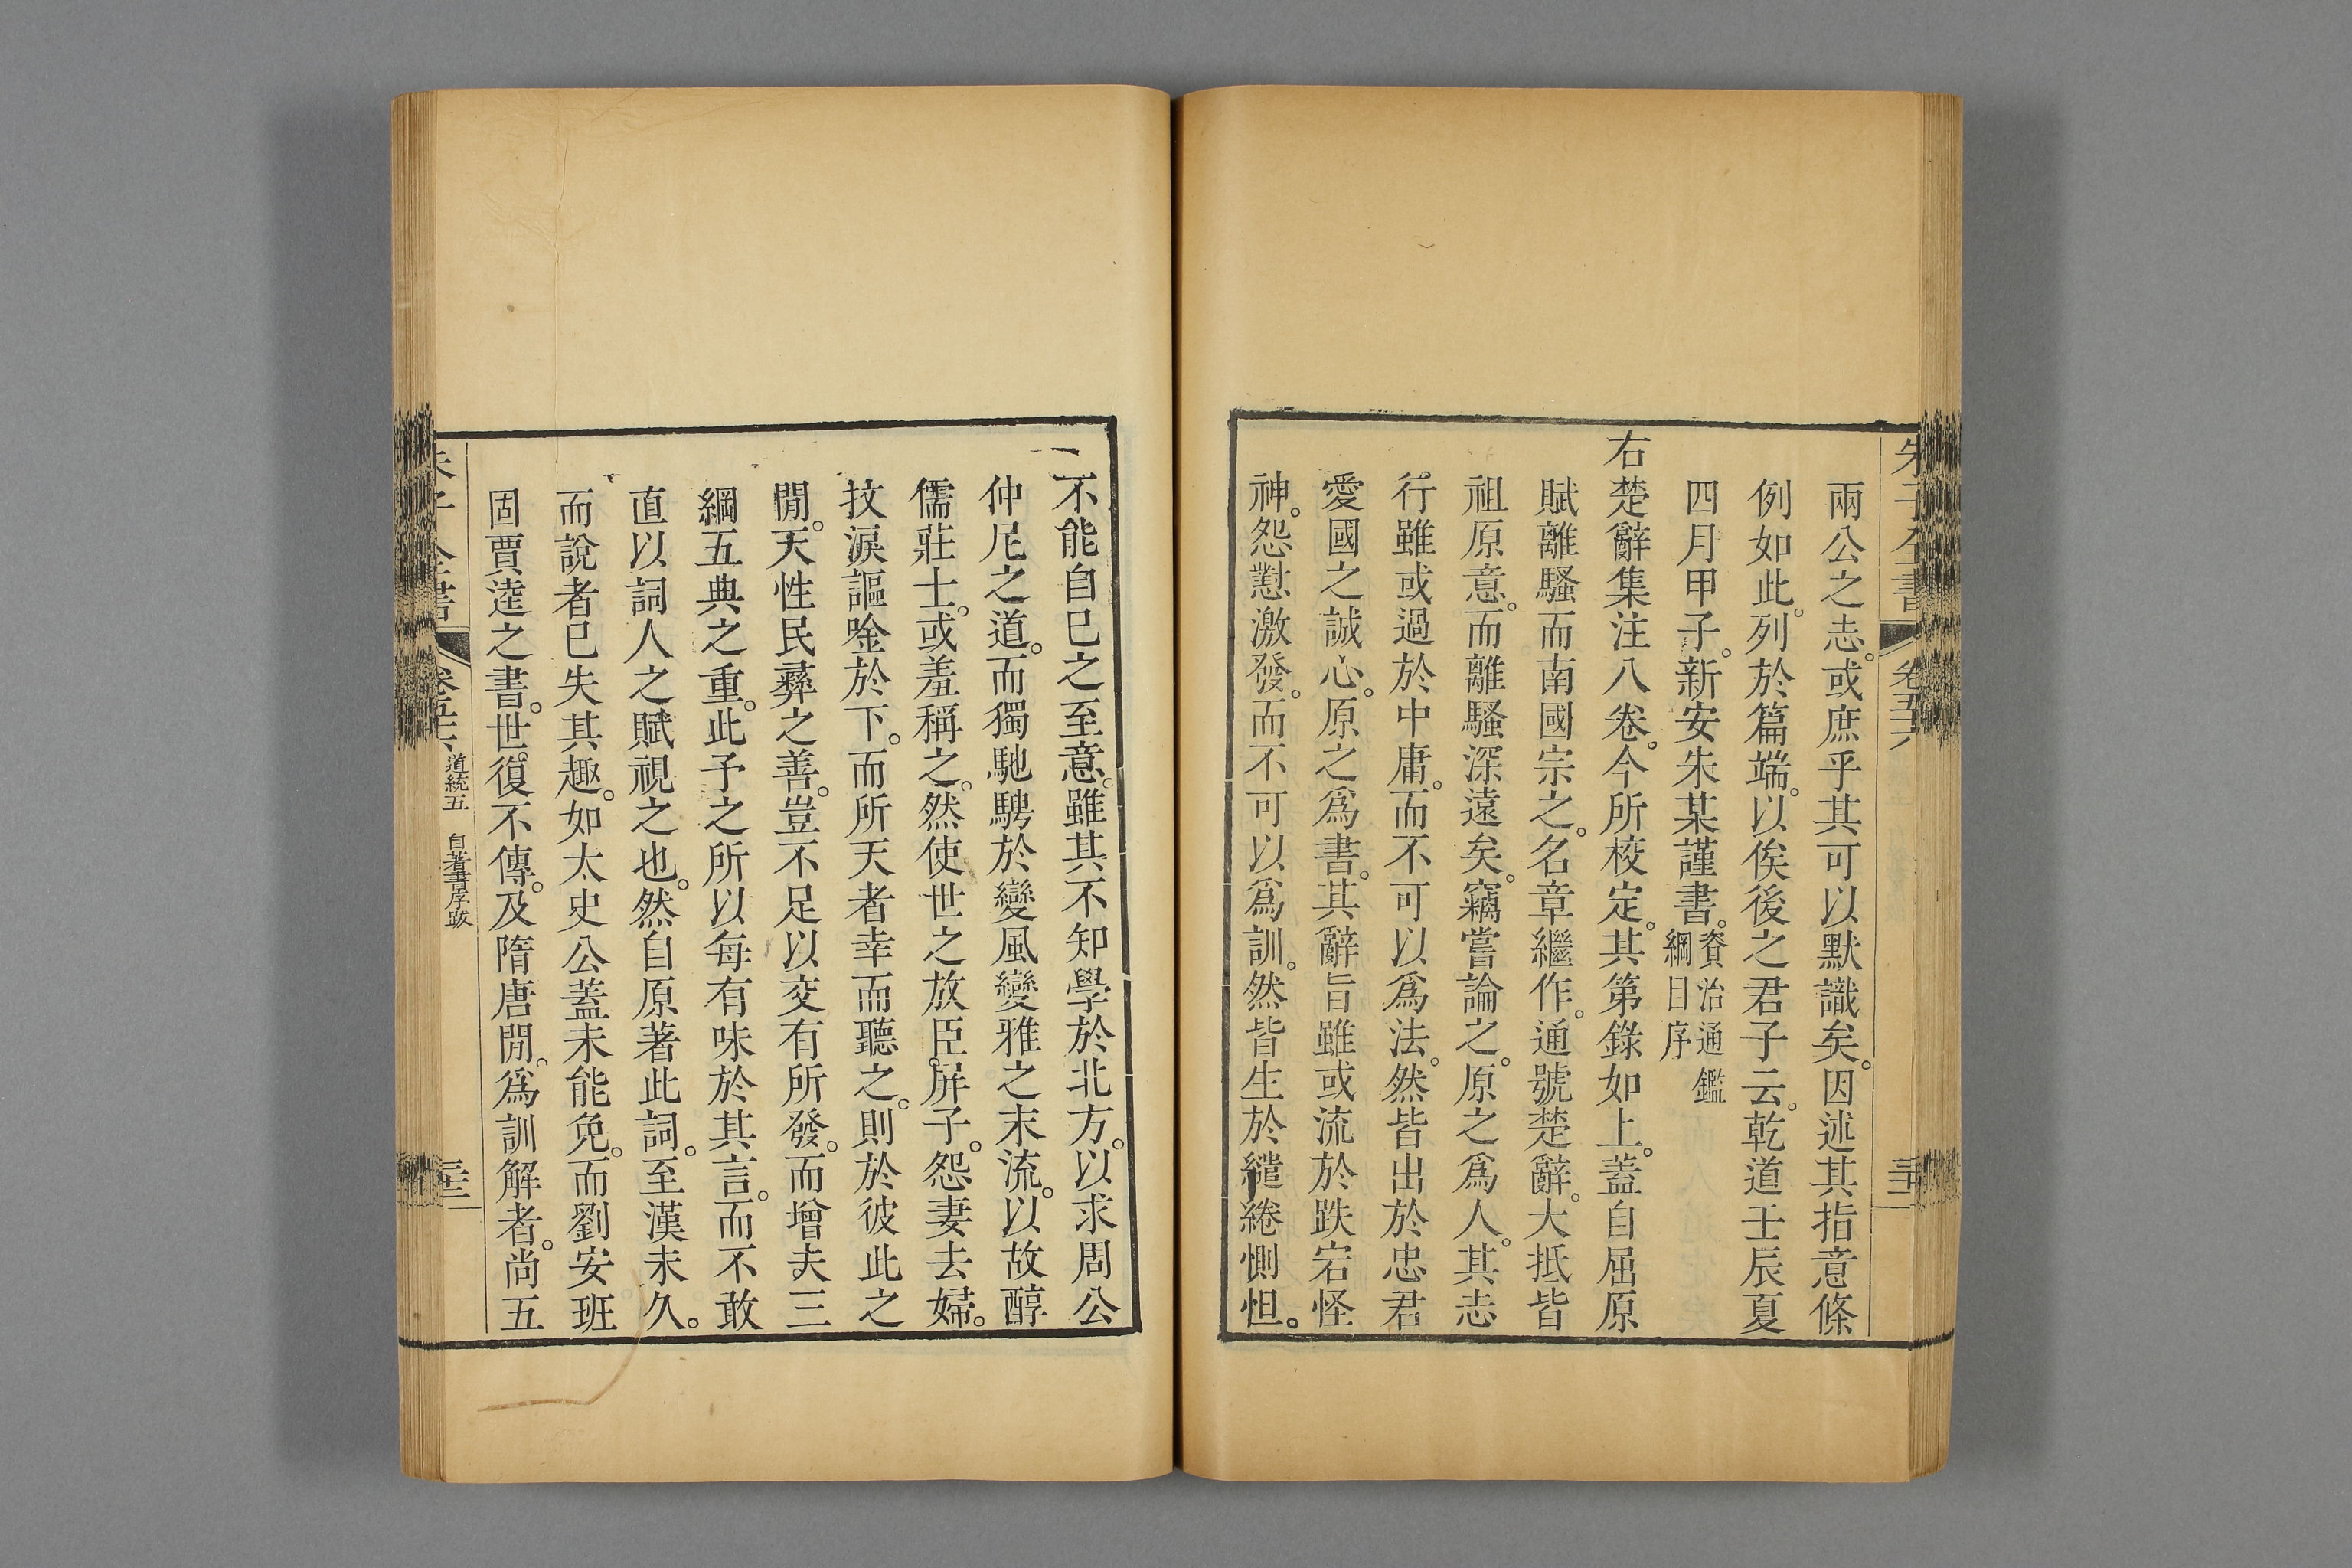 朱子全書 卷五六 三三
兩公之志。或庶乎其可以默識矣。因述其指意條
例如此。列於篇端。以俟後之君子云。乾道壬辰夏
四月甲子。新安朱某謹書。資治通鑑
綱目序
右楚辭集注八卷。今所校定。其第錄如上。蓋自屈原
賦離騷而南國宗之。名章繼作。通號楚辭。大抵皆
祖原意。而離騷深遠矣。竊嘗論之。原之爲人。其志
行雖或過於中庸。而不可以爲法。然皆出於忠君
愛國之誠心。原之爲書。其辭旨雖或流於跌宕怪
神。怨懟激發。而不可以爲訓。然皆生於繾綣惻怛。
不能自已之至意。雖其不知學於北方。以求周公
仲尼之道。而獨馳騁於變風變雅之末流。以故醇
儒莊士。或羞稱之。然使世之放臣。屏子。怨妻去婦。
抆淚謳唫於下。而所天者幸而聽之。則於彼此之
閒。天性民彝之善。豈不足以交有所發。而增夫三
綱五典之重。此予之所以每有味於其言。而不敢
直以詞人之賦視之也。然自原著此詞。至漢未久。
而說者已失其趣。如太史公蓋未能免。而劉安班
固賈逵之書。世。復不傳。及隋唐閒。爲訓解者。尚五
朱子全書 卷五六 道統五 自著書序跋